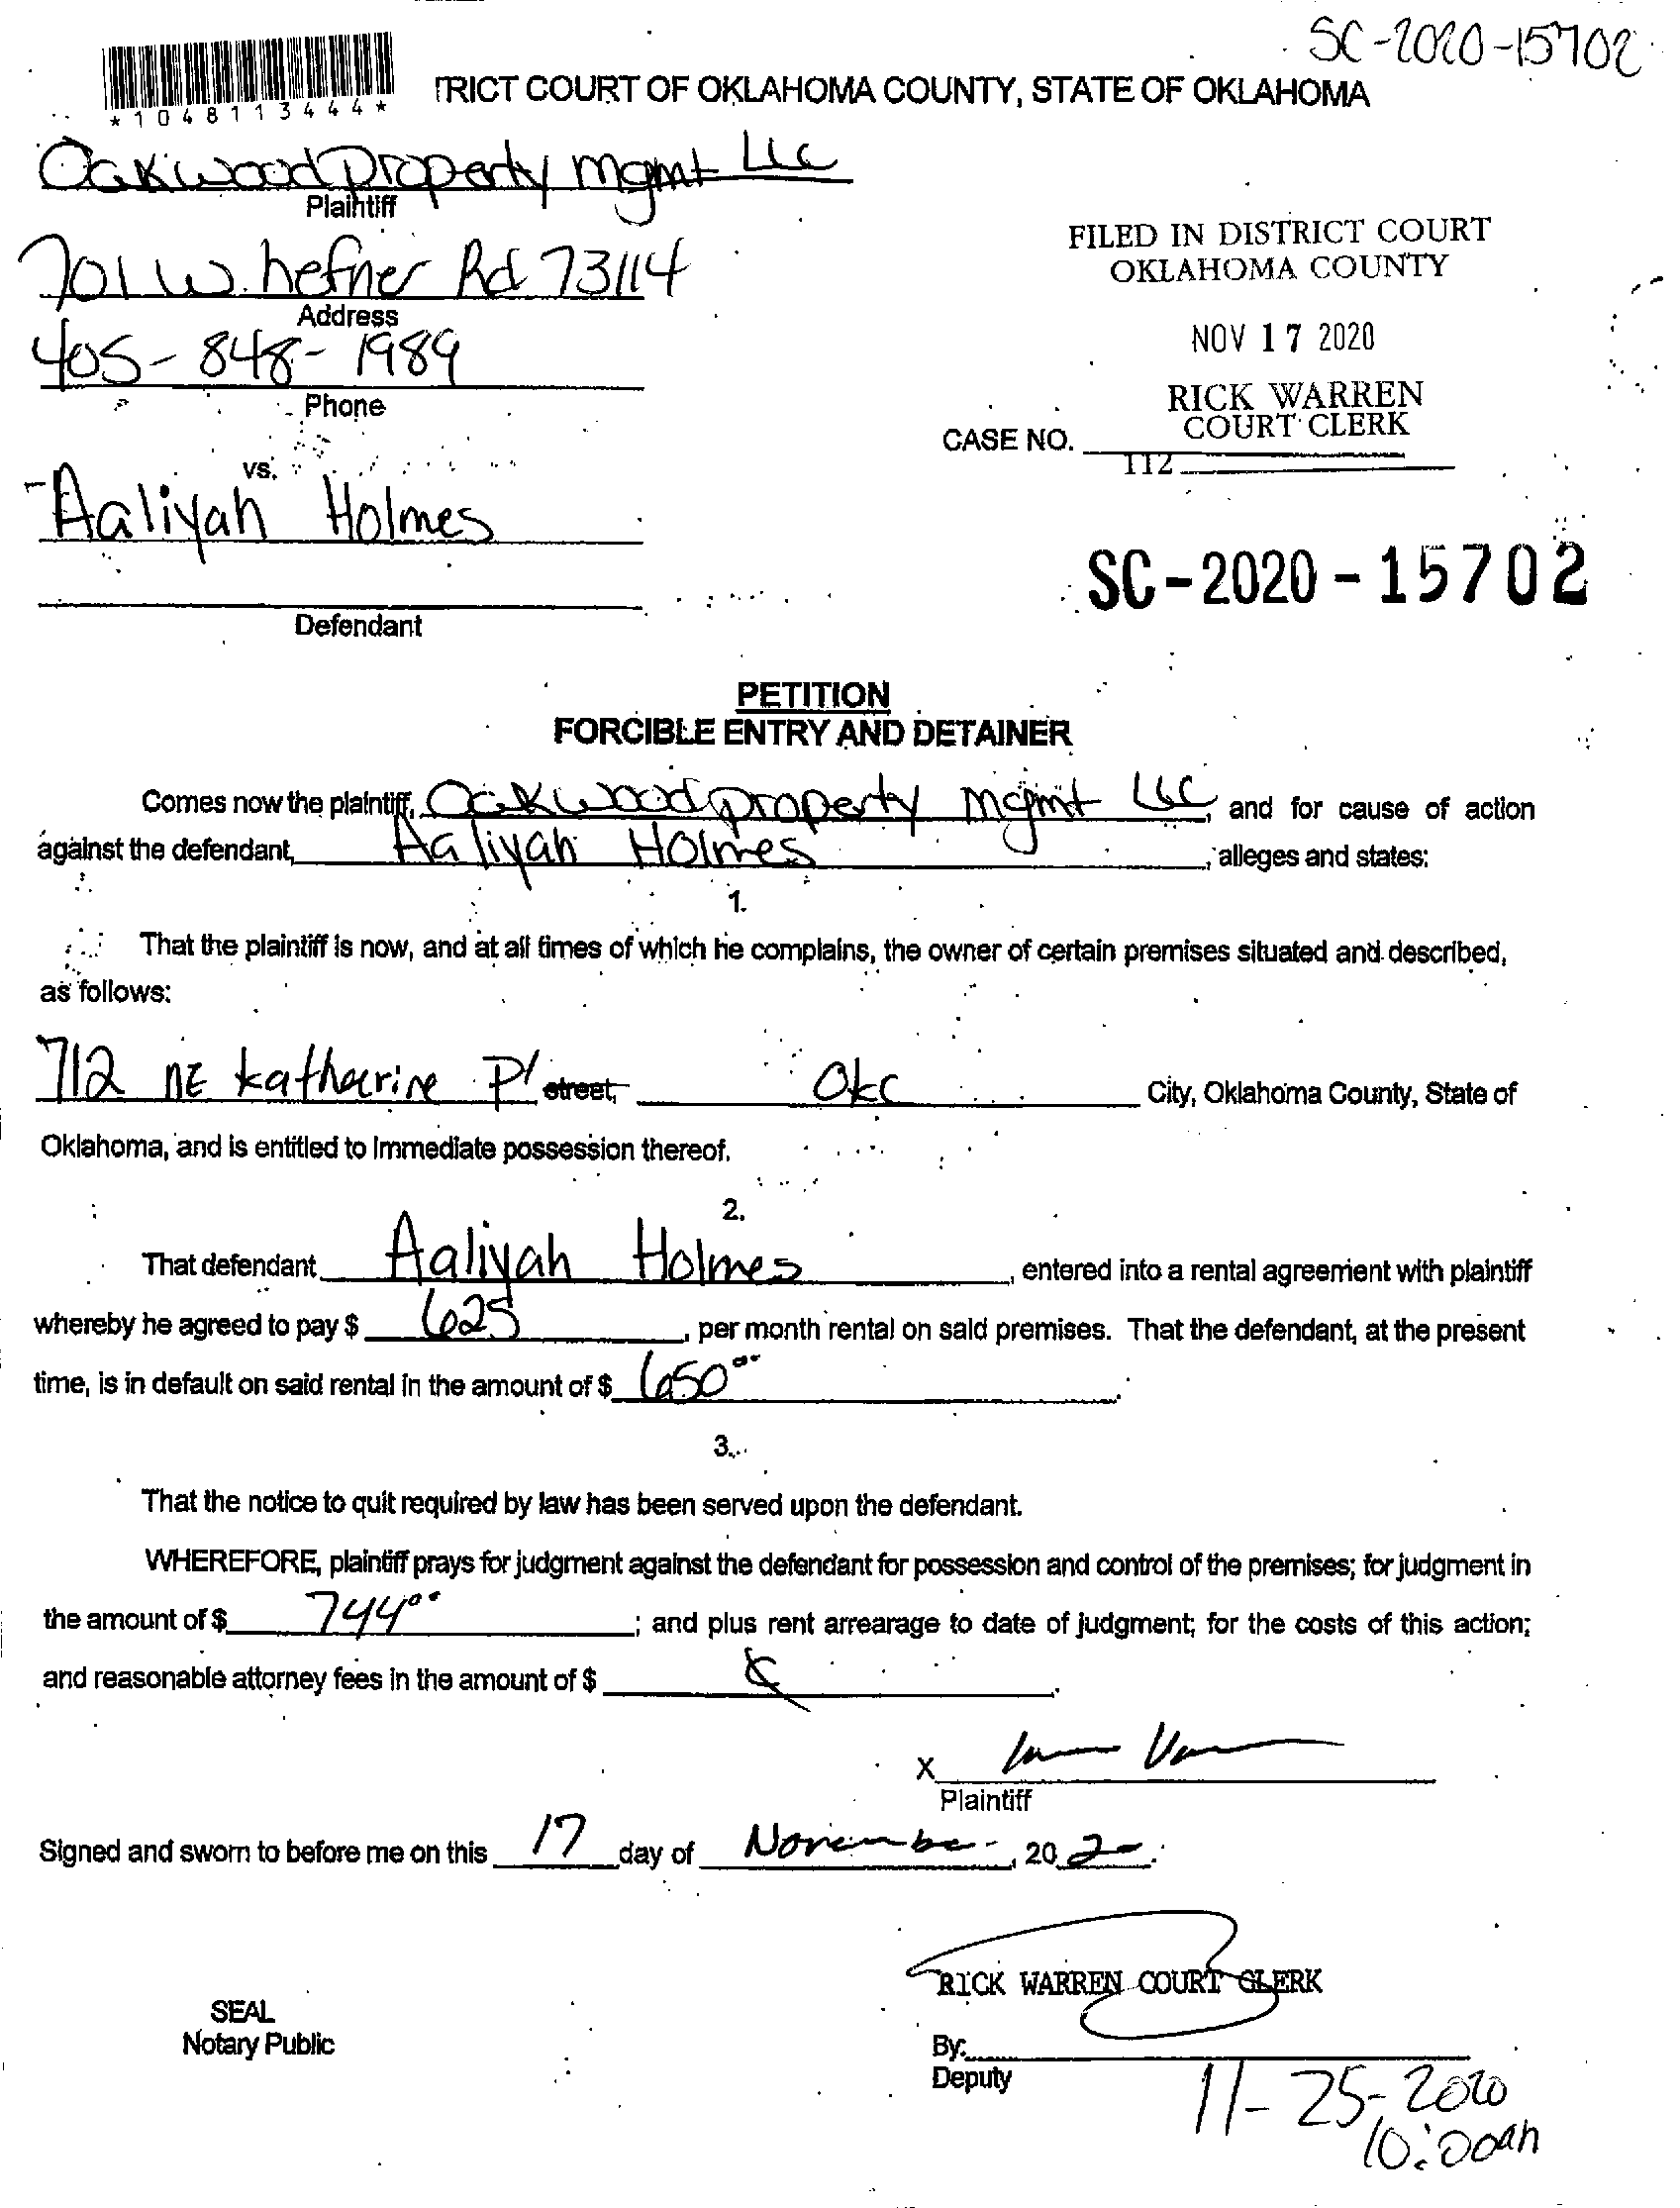 SC-2020-15702
*1048113444*
TRICT COURT OF OKLAHOMA COUNTY, STATE OF OKLAHOMA
Oakwood Property mgmt LLC
Plaintiff
701 W. hefner Rd 73114
Address
405-848-1989
Phone
FILED IN DISTRICT COURT
OKLAHOMA COUNTY
NOV 17 2020
RICK WARREN
COURT CLERK
CASE NO.
112
vs.
Aaliyah Holmes
Defendant
SC-2020-15702
PETITION
FORCIBLE ENTRY AND DETAINER
Comes now the plaintiff, Oakwood property Mgmt LLC, and for cause of action
against the defendant, Aaliyah Holmes, alleges and states:
1.
That the plaintiff is now, and at all times of which he complains, the owner of certain premises situated and described,
as follows:
712 NE Katherine Pl street, OKC City, Oklahoma County, State of
Oklahoma, and is entitled to immediate possession thereof.
2.
That defendant Aaliyah Holmes, entered into a rental agreement with plaintiff
whereby he agreed to pay $ 625, per month rental on said premises. That the defendant, at the present
time, is in default on said rental in the amount of $ 650.00.
3.
That the notice to quit required by law has been served upon the defendant.
WHEREFORE, plaintiff prays for judgment against the defendant for possession and control of the premises; for judgment in
the amount of $ 744.00; and plus rent arrearage to date of judgment; for the costs of this action;
and reasonable attorney fees in the amount of $
X
Plaintiff
Signed and sworn to before me on this 17 day of November, 2020.
RICK WARREN COURT CLERK
SEAL
Notary Public
By:
Deputy
11-25-2020
10:00am